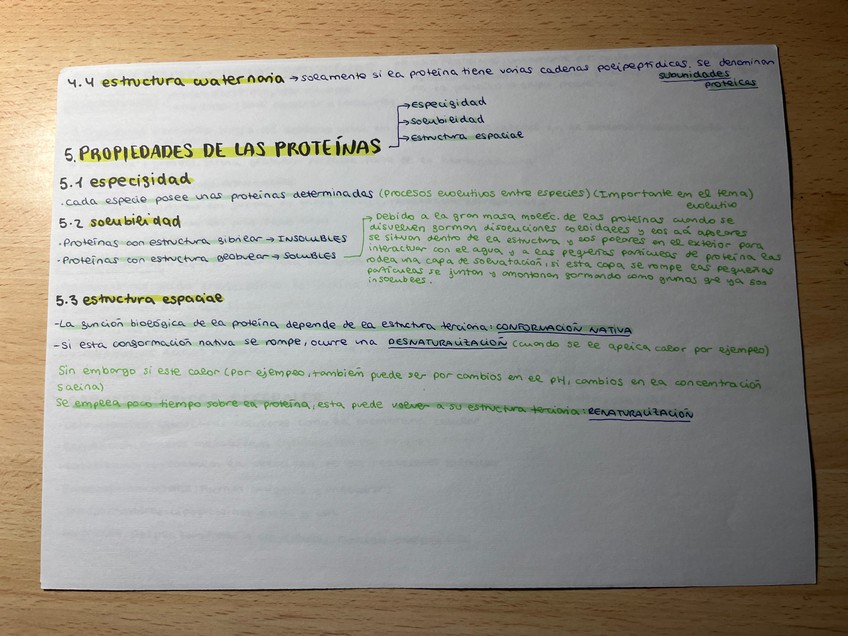 4.4 estructura cuaternaria → solamente si la proteína tiene varias cadenas polipeptídicas, se denominan
subunidades
proteicas
→ Especifidad
→ Solubilidad
→ Estructura espacial
5. PROPIEDADES DE LAS PROTEÍNAS
5.1 especifidad
· cada especie posee unas proteínas determinadas (procesos evolutivos entre especies) (Importante en el tema)
evolutivo
5.2 solubilidad
· Proteínas con estructura fibrilar → INSOLUBLES
· Proteínas con estructura globular → SOLUBLES
→ Debido a la gran masa molec. de las proteínas cuando se
disuelven forman disoluciones coloidales y los aá apolares
se situan dentro de la estructura y los polares en el exterior para
interactuar con el agua y a las pequeñas partículas de proteína las
rodea una capa de solvatación, si esta capa se rompe las pequeñas
partículas se juntan y amontonan formando como grumos que ya son
insolubles.
5.3 estructura espacial
- La función biológica de la proteína depende de la estructura terciaria: CONFORMACIÓN NATIVA
- Si esta conformación nativa se rompe, ocurre una DESNATURALIZACIÓN (cuando se le aplica calor por ejemplo)
Sin embargo si este calor (por ejemplo, también puede ser por cambios en el pH, cambios en la concentración
salina)
se emplea poco tiempo sobre la proteína, esta puede volver a su estructura terciaria: RENATURALIZACIÓN